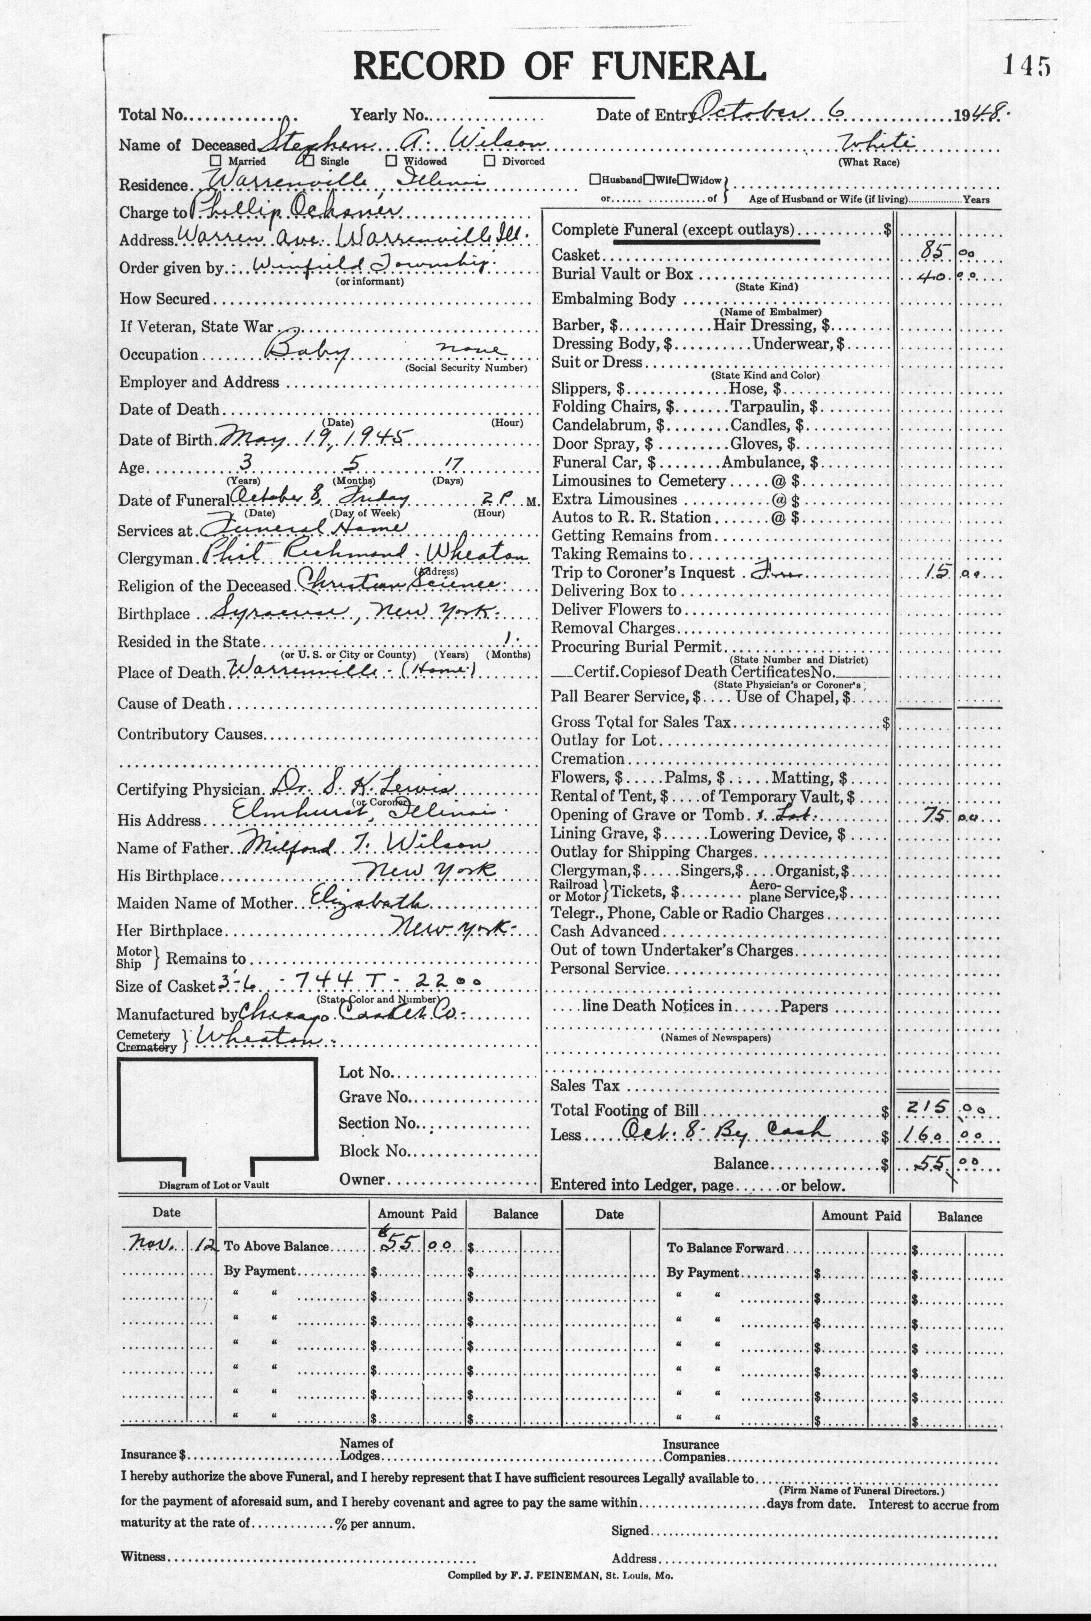 RECORD OF FUNERAL
145
Total No. Yearly No. Date of Entry October 6 1948.
Name of Deceased Stephen A. Wilson White
☐ Married ☐ Single ☐ Widowed ☐ Divorced (What Race)
Residence. Warrenville, Illinois ☐Husband☐Wife☐Widow
or of Age of Husband or Wife (if living) Years
Charge to Phillip Ochsner
Address. Warren Ave. Warrenville Ill.
Order given by: Winfield Township
(or informant)
How Secured
If Veteran, State War
Occupation Baby none
(Social Security Number)
Employer and Address
Date of Death
(Date) (Hour)
Date of Birth. May 19, 1945
Age 3 5 17
(Years) (Months) (Days)
Date of Funeral October 8, Friday 2 P. M.
(Date) (Day of Week) (Hour)
Services at Funeral Home
Clergyman Richmond. Wheaton
(Address)
Religion of the Deceased Christian Science.
Birthplace Syracuse, New York.
Resided in the State 1.
(or U. S. or City or County) (Years) (Months)
Place of Death. Warrenville - (Home)
Cause of Death
Contributory Causes
Certifying Physician Dr. S. K. Lewis
(or Coroner)
His Address Elmhurst, Illinois
Name of Father. Milford T. Wilson
His Birthplace New York
Maiden Name of Mother Elizabeth
Her Birthplace New York.
Motor
Ship } Remains to
Size of Casket 3-6 - 744 T - 22 00
(State Color and Number)
Manufactured by Chicago Casket Co.
Cemetery
Crematory } Wheaton.
Lot No.
Grave No.
Section No.
Block No.
Owner
Diagram of Lot or Vault
Complete Funeral (except outlays) $
Casket 85 00
Burial Vault or Box 40 00
(State Kind)
Embalming Body
(Name of Embalmer)
Barber, $ Hair Dressing, $
Dressing Body, $ Underwear, $
Suit or Dress
(State Kind and Color)
Slippers, $ Hose, $
Folding Chairs, $ Tarpaulin, $
Candelabrum, $ Candles, $
Door Spray, $ Gloves, $
Funeral Car, $ Ambulance, $
Limousines to Cemetery @ $
Extra Limousines @ $
Autos to R. R. Station @ $
Getting Remains from
Taking Remains to
Trip to Coroner's Inquest 15 00
Delivering Box to
Deliver Flowers to
Removal Charges
Procuring Burial Permit
(State Number and District)
Certif. Copies of Death Certificates No.
(State Physician's or Coroner's)
Pall Bearer Service, $ Use of Chapel, $
Gross Total for Sales Tax $
Outlay for Lot
Cremation
Flowers, $ Palms, $ Matting, $
Rental of Tent, $ of Temporary Vault, $
Opening of Grave or Tomb & Lot. 75 00
Lining Grave, $ Lowering Device, $
Outlay for Shipping Charges
Clergyman,$ Singers,$ Organist,$
Railroad
or Motor } Tickets, $ Aero-
plane Service,$
Telegr., Phone, Cable or Radio Charges
Cash Advanced
Out of town Undertaker's Charges
Personal Service
line Death Notices in Papers
(Names of Newspapers)
Sales Tax
Total Footing of Bill $ 215 00
Less Oct. 8 - By Cash $ 160 00
Balance $ 55 00
Entered into Ledger, page or below.
Date Amount Paid Balance Date Amount Paid Balance
Nov. 12 To Above Balance $55 00 $ To Balance Forward $
By Payment $ $ By Payment $ $
" " $ $ " " $ $
" " $ $ " " $ $
" " $ $ " " $ $
" " $ $ " " $ $
" " $ $ " " $ $
" " $ $ " " $ $
Insurance $ Names of
Lodges Insurance
Companies
I hereby authorize the above Funeral, and I hereby represent that I have sufficient resources Legally available to
(Firm Name of Funeral Directors.)
for the payment of aforesaid sum, and I hereby covenant and agree to pay the same within days from date. Interest to accrue from
maturity at the rate of % per annum.
Signed
Witness Address
Compiled by F. J. FEINEMAN, St. Louis, Mo.